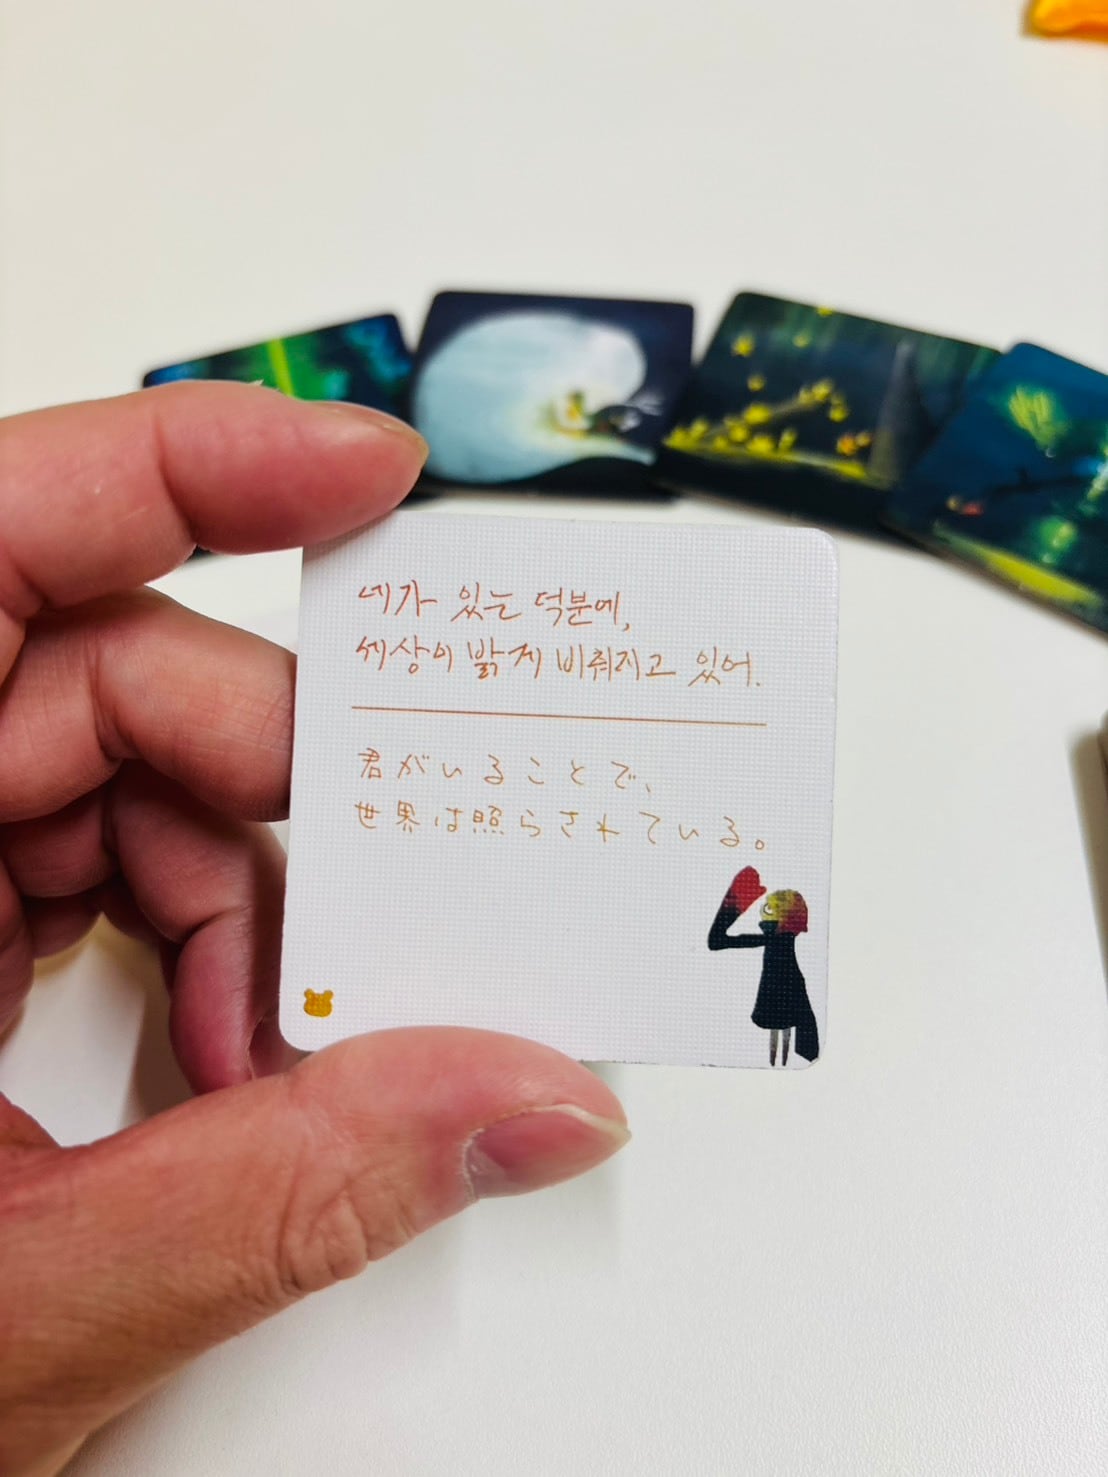 네가 있는 덕분에,
세상이 밝게 비춰지고 있어.
君がいることで、
世界は照らされている。